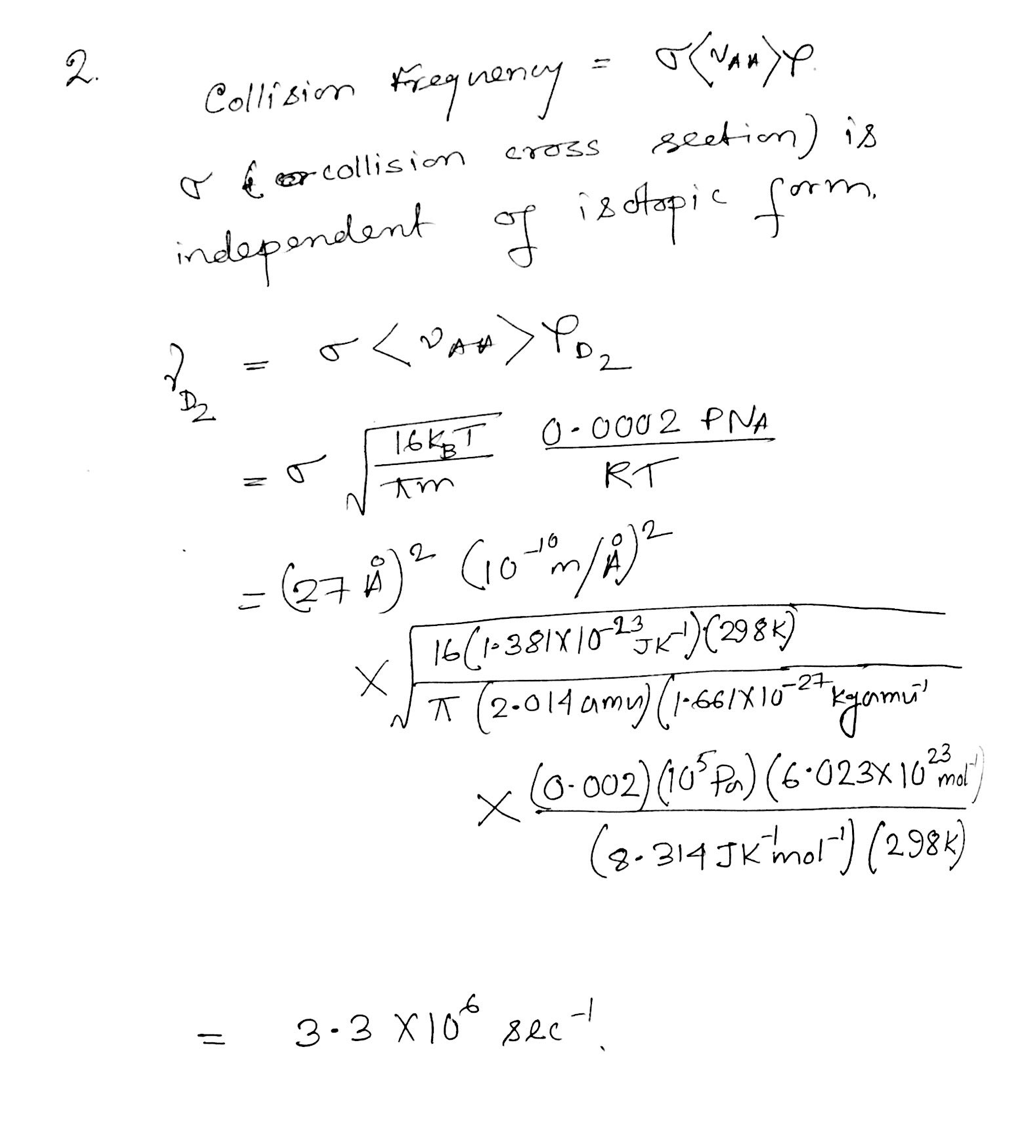 2. Collision frequency = σ⟨νAA⟩ρ.
σ (collision cross section) is
independent of isotopic form.
νD₂ = σ⟨νAA⟩ρD₂
= σ √(16kBT / πm) 0.0002 PNA / RT
= (27 Å)² (10⁻¹⁰ m/Å)²
× √(16(1.381×10⁻²³ JK⁻¹)(298K) / π (2.014 amu)(1.661×10⁻²⁷ kgamu⁻¹)
× (0.002)(10⁵ Pa)(6.023×10²³ mol⁻¹) / (8.314 JK⁻¹mol⁻¹)(298K)
= 3.3 ×10⁶ sec⁻¹.